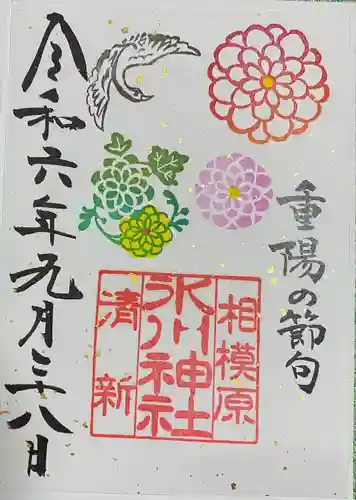 重陽の節句
相模原
氷川神社
清新
令和六年九月二十八日